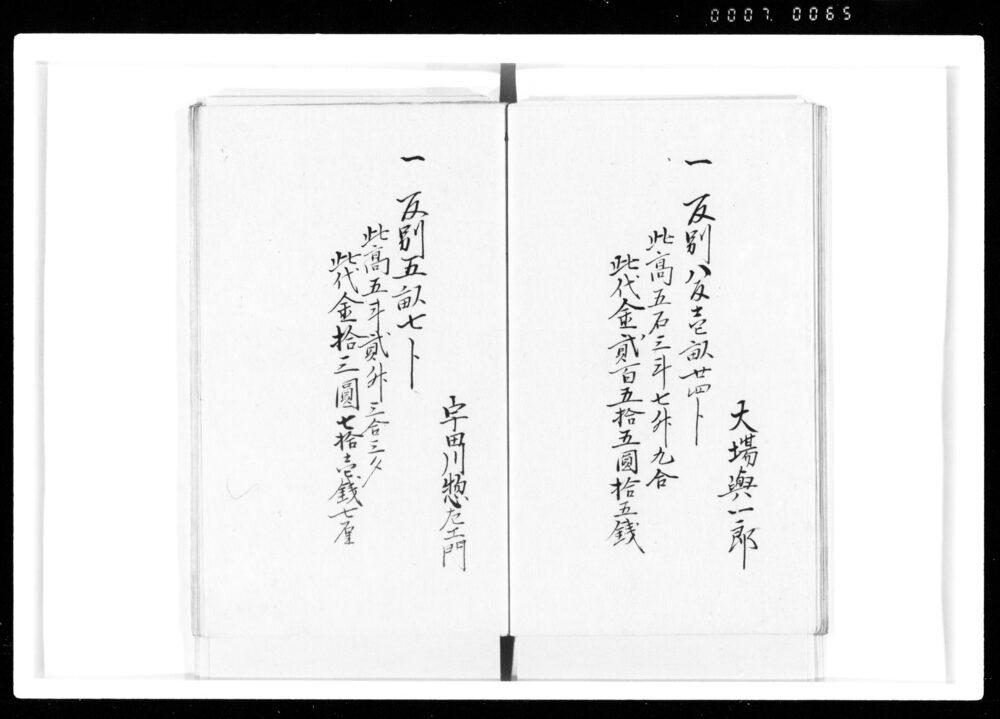 0007 0065
大場與一郎
一 反別八反壱畝廿四卜
此高五石三斗七升九合
此代金貳百五拾五圓拾五錢
宇田川惣左エ門
一 反別五畝七卜
此高五斗貳升三合三夕
此代金拾三圓七拾壱錢七厘